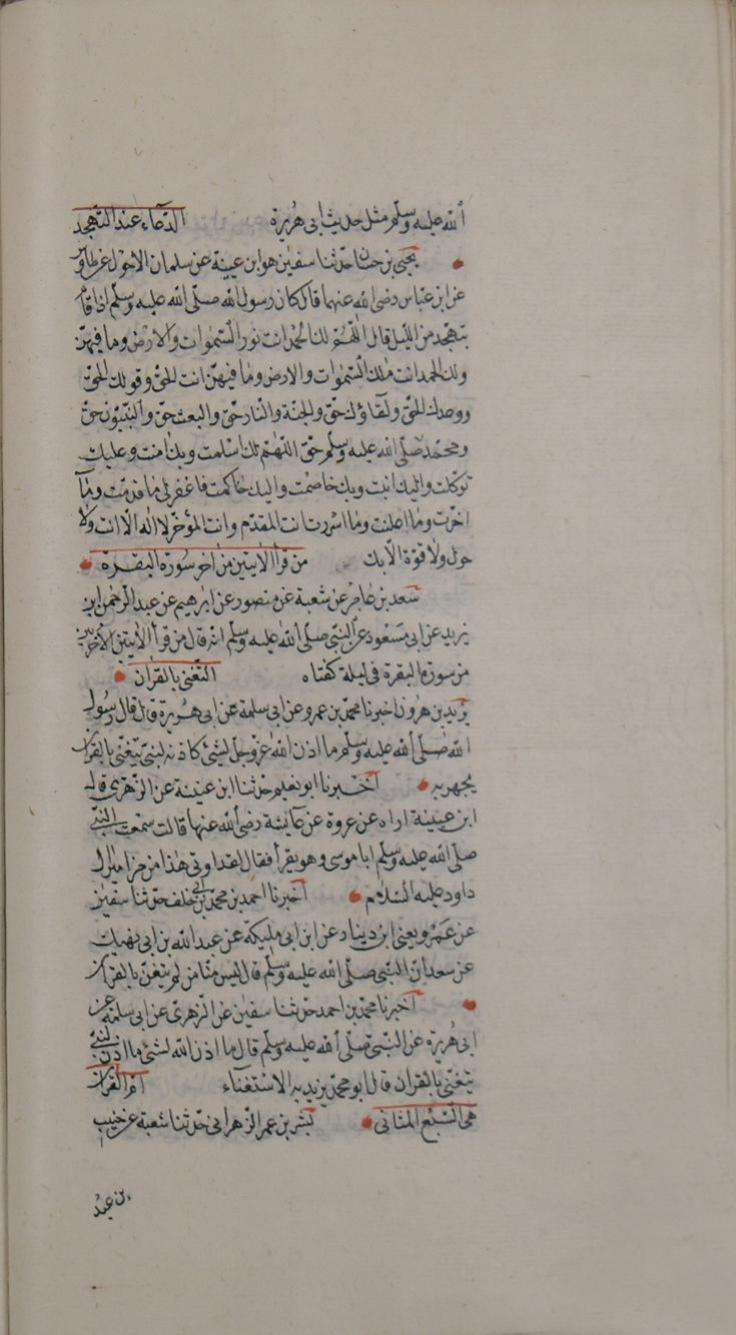 الله عليه وسلم مثل حديث ابى هريرة الدعاء عند التهجد
يحيى بن حسان حدثنا سفين هو ابن عيينة عن سلمان الاحول عن طاوس
عن ابن عباس رضى الله عنهما قال كان رسول الله صلى الله عليه وسلم اذا قام
يتهجد من الليل قال اللهم لك الحمد انت نور السموات والارض وما فيهن
ولك الحمد انت ملك السموات والارض وما فيهن انت الحق وقولك الحق
ووعدك الحق ولقاؤك حق والجنة والنار حق والبعث حق والنبيون حق
ومحمد صلى الله عليه وسلم حق اللهم لك اسلمت وبك امنت وعليك
توكلت واليك انبت وبك خاصمت واليك حاكمت فاغفر لى ما قدمت وما
اخرت وما اعلنت وما اسررت انت المقدم وانت المؤخر لا اله الا انت ولا
حول ولا قوة الا بك من قرأ الايتين من اخر سورة البقرة
سعد بن عامر عن شعبة عن منصور عن ابرهيم عن عبد الرحمن ابن
يزيد عن ابى مسعود عن النبى صلى الله عليه وسلم انه قال من قرأ الايتين الاخريين
من سورة البقرة فى ليلة كفتاه التغنى بالقران
يزيد بن هرون اخبرنا محمد بن عمرو عن ابى سلمة عن ابى هريرة قال قال رسول
الله صلى الله عليه وسلم ما اذن الله عز وجل لشئ كاذنه لنبى يتغنى بالقران
يجهر به اخبرنا ابو نعيم حدثنا ابن عيينة عن الزهرى قال
ابن عيينة اراه عن عروة عن عايشة رضى الله عنها قالت سمعت النبى
صلى الله عليه وسلم ابا موسى وهو يقرأ فقال لقد اوتى هذا من مزامير ال
داود عليه السلام اخبرنا احمد بن محمد بن خلف حدثنا سفين
عن عمرو يعنى ابن دينار عن ابن ابى مليكة عن عبد الله بن ابى نهيك
عن سعد ان النبى صلى الله عليه وسلم قال ليس منا من لم يتغن بالقران
اخبرنا محمد بن احمد حدثنا سفين عن الزهرى عن ابى سلمة عن
ابى هريرة عن النبى صلى الله عليه وسلم قال ما اذن الله لشئ ما اذن لنبى
يتغنى بالقران قال ابو محمد يريد به الاستغناء ام القران
هى السبع المثانى بشر بن عمر الزهرانى حدثنا شعبة عن خبيب
بن عبد